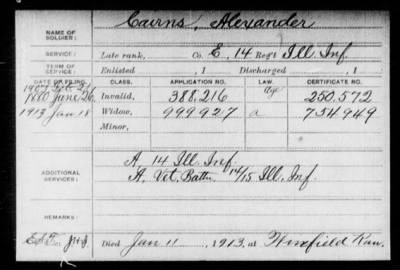 Cairns, Alexander
NAME OF SOLDIER:
SERVICE: Late rank, Co. E, 14 Reg't Ill. Inf.
TERM OF SERVICE: Enlisted , 1 Discharged , 1
DATE OF FILING. CLASS. APPLICATION NO. LAW. CERTIFICATE NO.
1907
1880 June 26 Invalid, 388,216 250,572
1913 Jan 18 Widow, 999927 a 754949
Minor,
ADDITIONAL SERVICES:
A, 14 Ill. Inf.
A, Vet. Battn. 14/15 Ill. Inf.
REMARKS:
Died Jan 11, 1913, at Winfield Kan.